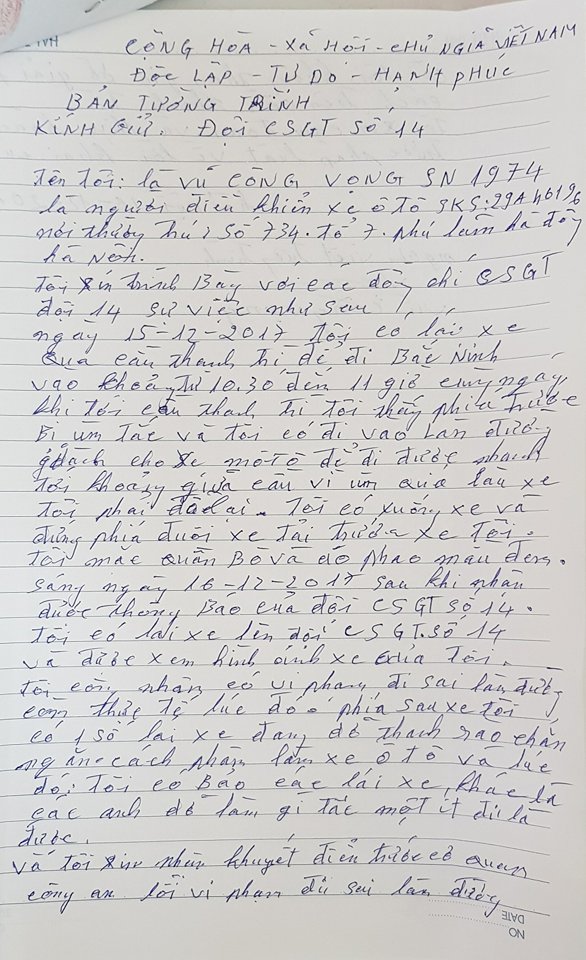 CỘNG HÒA - XÃ HÔI - CHỦ NGIÃ VIỆT NAM
ĐỘC LẬP - TỰ DO - HẠNH PHÚC
BẢN TƯỜNG TRÌNH
KÍNH GỬI. ĐỘI CSGT SỐ 14
Tên tôi: là VŨ CÔNG VỌNG SN 1974
là người điều khiển xe ô tô BKS: 29A
nơi thường trú: Số 734. tổ 7. phú lãm hà đông
hà nội.
Tôi xin trình Bày với các đồng chí CSGT
đội 14 sự việc như sau
ngày 15-12-2017 tôi có lái xe
qua cầu thanh trì để đi Bắc Ninh
vào khoảng từ 10.30 đến 11 giờ cùng ngày
khi tới cầu thanh trì tôi thấy phía trước
Bị ùn tắc và tôi có đi vào làn đường
dành cho xe môtô để đi được nhanh
tới khoảng giữa cầu vì ùn quá lâu xe
tôi phải dừng lại. Tôi có xuống xe và
đứng phía đuôi xe tải trước xe tôi.
tôi mặc quần Bò và áo phao màu đen.
sáng ngày 16-12-2017 sau khi nhận
được thông Báo của đội CSGT số 14.
tôi có lái xe lên đội CSGT số 14
và được xem hình ảnh xe của tôi.
tôi công nhận có vi phạm đi sai làn đường
còn thực tế lúc đó phía sau xe tôi
có 1 số lái xe đang dỡ thanh rào chắn
ngăn cách phạm làm xe ô tô và lúc
đó: tôi có Bảo các lái xe khác là
các anh dỡ làm gì tắc một ít đi là
được.
và tôi xin nhận khuyết điểm trước cơ quan
công an lỗi vi phạm đi sai làn đường
NO
DATE